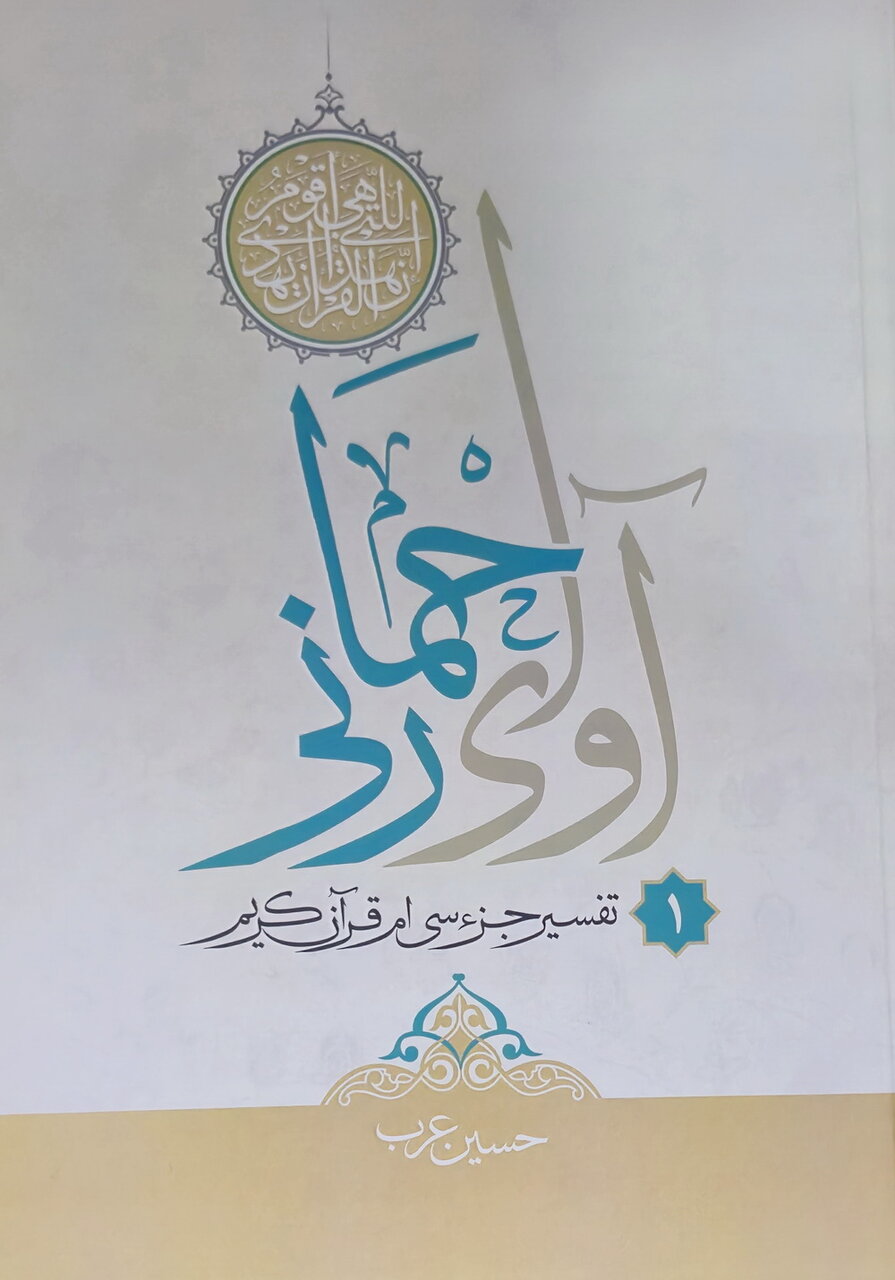 ان هذا القرآن یهدی
للتی هی أقوم
آوای
رحمانی
۱
تفسیر جزء سی ام قرآن کریم
حسین عرب